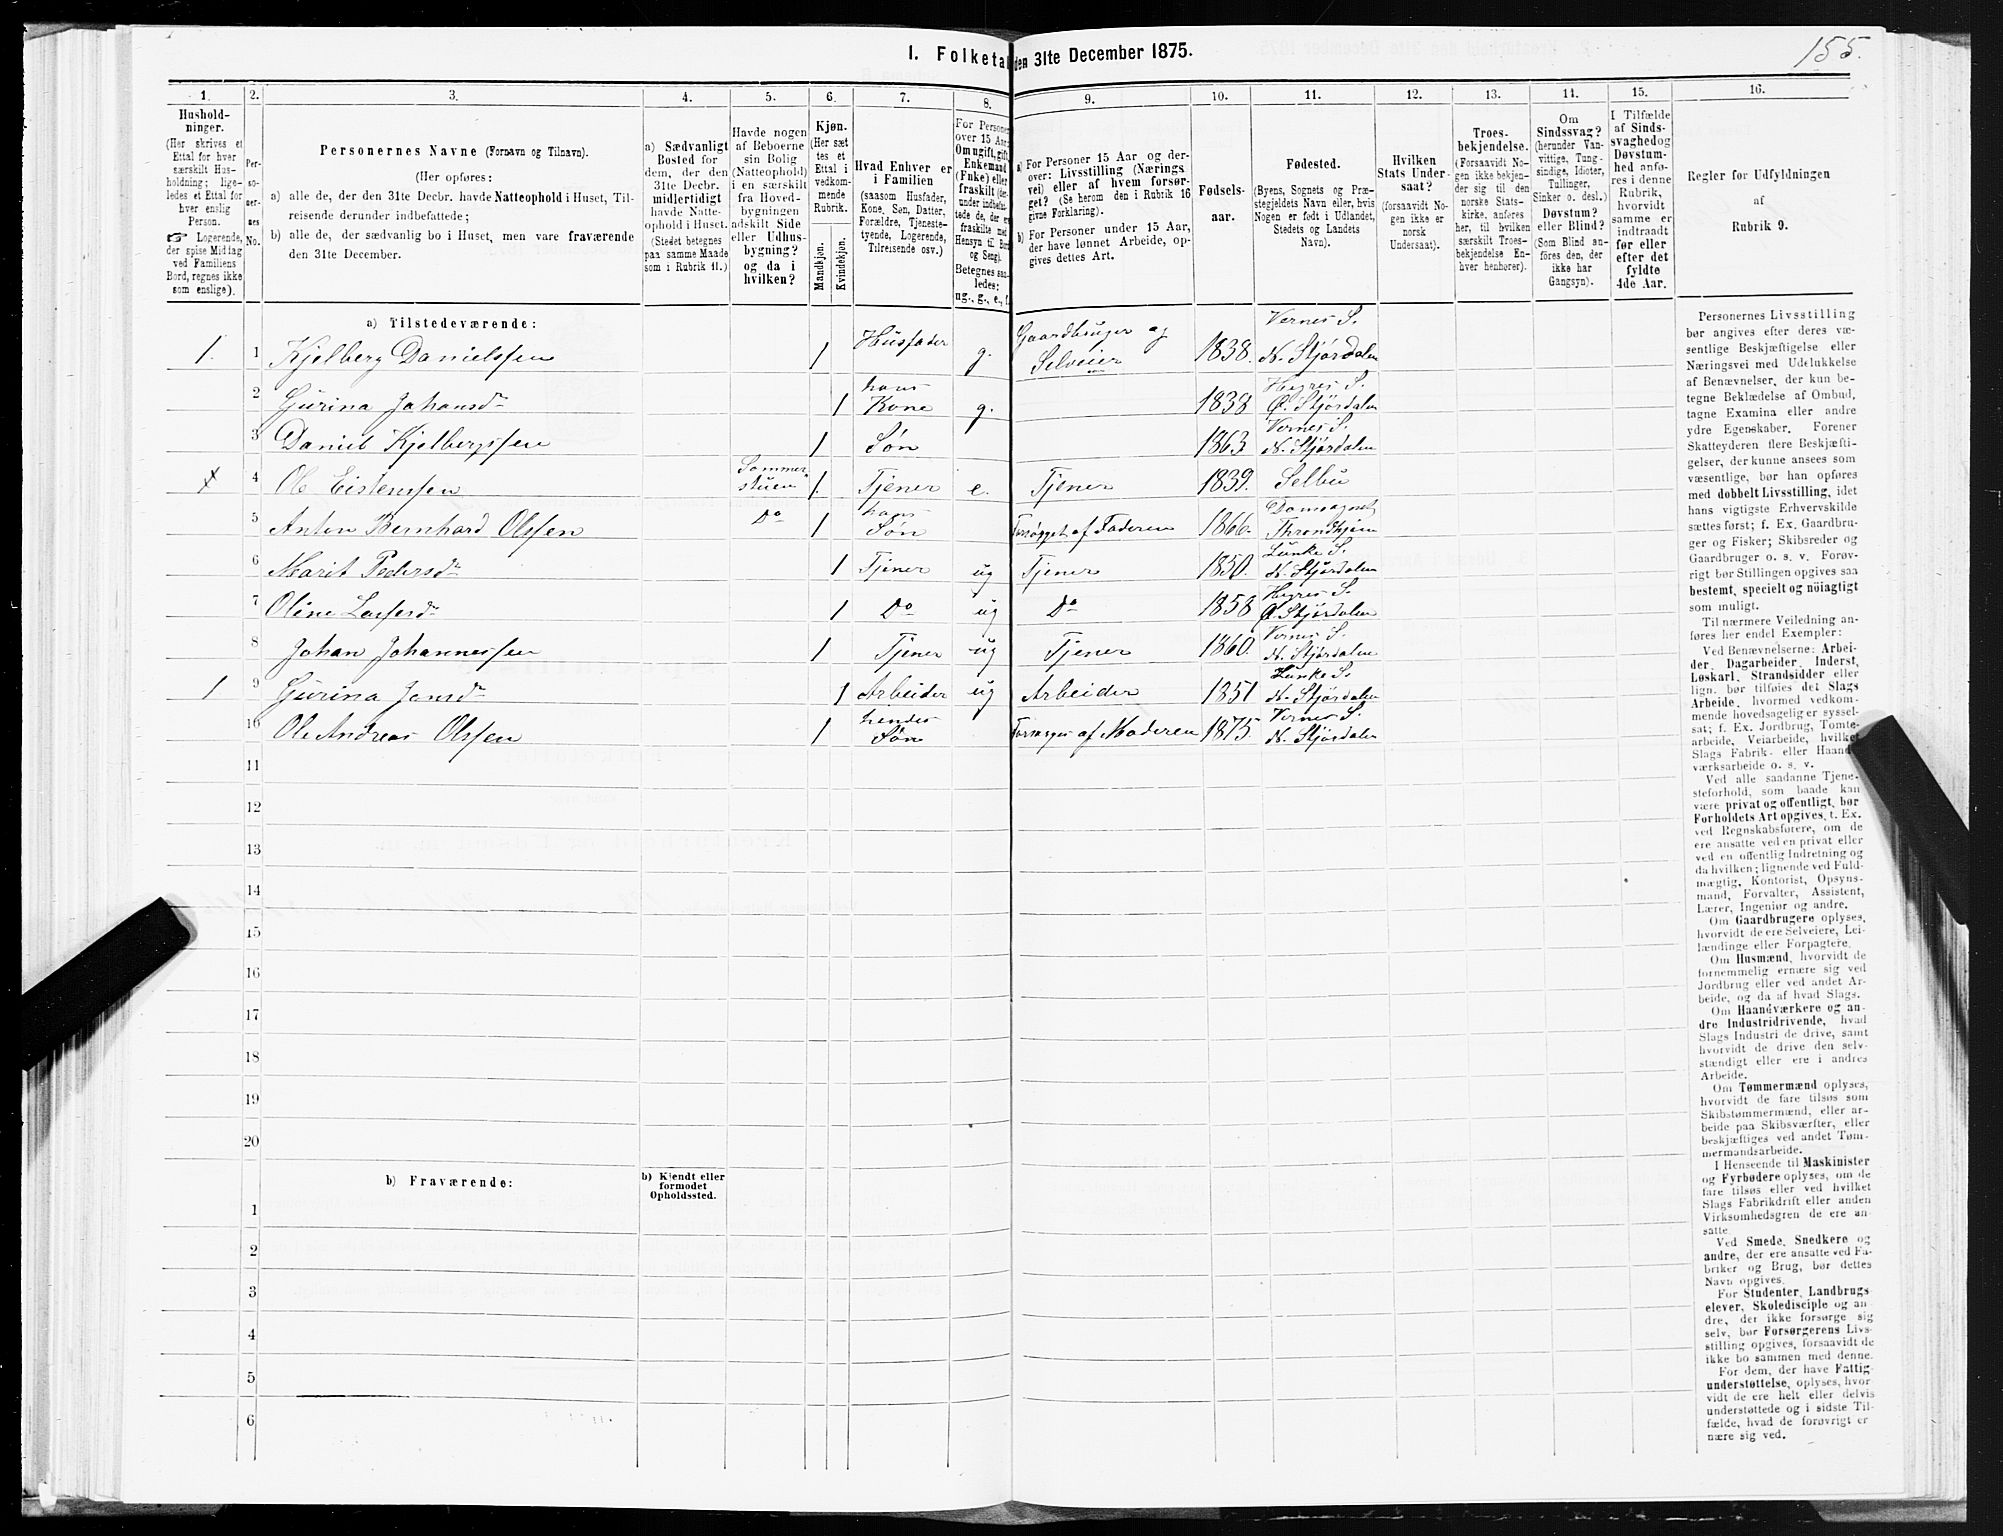 1. Folketal den 31te December 1875.
155.
1.
Hushold-
ninger.
(Her skrives et
Ettal for hver
særskilt Hus-
holdning; lige-
ledes et Ettal for
hver enslig
Person.
☞ Logerende,
der spise Middag
ved Familiens
Bord, regnes ikke
som enslige).
2.
Per-
so-
ner-
nes
No.
3.
Personernes Navne (Fornavn og Tilnavn).
(Her opføres:
a) alle de, der den 31te Decbr. havde Natteophold i Huset, Til-
reisende derunder indbefattede;
b) alle de, der sædvanlig bo i Huset, men vare fraværende
den 31te December.
4.
a) Sædvanligt
Bosted for
dem, der den
31te Decbr.
midlertidigt
havde Natte-
ophold i Huset.
(Stedet betegnes
paa samme Maade
som i Rubrik 11.)
5.
Havde nogen
af Beboerne
sin Bolig
(Natteophold)
i en særskilt
fra Hoved-
bygningen
adskilt Side
eller Udhus-
bygning?
og da i
hvilken?
6.
Kjøn.
(Her sæt
tes et
Ettal i
vedkom-
mende
Rubrik.
Mandkjøn.
Kvindekjøn.
7.
Hvad Enhver er
i Familien
(saasom Husfader,
Kone, Søn, Datter,
Forældre, Tjeneste-
tyende, Logerende,
Tilreisende osv.)
8.
For Personer
over 15 Aar:
Om ugift, gift,
Enkemand
(Fnke) eller
fraskilt (der-
under indbefat-
tede de, der er
fraskilte med
Hensyn til Bord
og Seng).
Betegnes saa-
ledes:
ug., g., e., f.
9.
a) For Personer 15 Aar og der-
over: Livsstilling (Nærings
vei) eller af hvem forsør-
get? (Se herom den i Rubrik 16
givne Forklaring).
b) For Personer under 15 Aar,
der have lønnet Arbeide, op-
gives dettes Art.
10.
Fødsels-
aar.
11.
Fødested.
(Byens, Sognets og Præ-
stegjeldets Navn eller, hvis
Nogen er født i Udlandet,
Stedets og Landets
Navn).
12.
Hvilken
Stats Under-
saat?
(forsaavidt No-
gen ikke er
norsk
Undersaat).
13.
Troes-
bekjendelse.
(Forsaavidt No-
gen ikke bekjen-
der sig til den
norske Stats-
kirke, anføres
her, til hvilken
særskilt Troes-
bekjendelse En-
hver henhører).
14.
Om
Sindssvag?
(herunder Van-
vittige, Tung-
sindige, Idioter,
Tullinger,
Sinker o. desl.)
Døvstum?
eller Blind?
(Som Blind an-
føres den, der
ikke har
Gangsyn).
15.
I Tilfælde
af Sinds-
svaghed og
Døvstum-
hed anfø-
res i denne
Rubrik,
hvorvidt
samme er
indtraadt
før eller
efter det
fyldte
4de Aar.
16.
Regler for Udfyldningen
af
Rubrik 9.
a) Tilstedeværende:
1. 1 Kjelberg Danielssen 1 Husfader g. Gaardbruger og Selveier 1838. Vernes S. N. Stjørdalen
2 Gurina Johansdr 1 hans Kone g. 1838 Hegres S. Ø. Stjørdalen
3 Daniel Kjelbergssen 1 Søn 1863 Vernes S. N. Stjørdalen
x 4 Ole Eistenssen Sommerstuen 1. Tjener e. Tjener 1839. Selbu
5 Anton Bernhard Olssen Do 1 hans Søn Forsørget af Faderen 1866. Domsognet Throndhjem
6 Marit Pedersdr 1 Tjener ug Tjener 1850. Lunke S. N. Stjørdalen
7 Oline Larsesdr 1 Do ug Do 1858 Hegres S. Ø. Stjørdalen
8 Johan Johannessen 1 Tjener ug Tjener 1860. Vernes S. N. Stjørdalen
1 9 Gurina Jonsdr 1 Arbeider ug Arbeider 1851 Lunke S. N. Stjørdalen
10 Ole Andreas Olssen 1 hendes Søn Forsørges af Moderen 1875. Vernes S. N. Stjørdalen
11
12
13
14
15
16
17
18
19
20
b) Fraværende:
b) Kjendt eller
formodet
Opholdssted.
1
2
3
4
5
6
Personernes Livsstilling
bør angives efter deres væ-
sentlige Beskjæftigelse eller
Næringsvei med Udelukkelse
af Benævnelser, der kun be-
tegne Beklædelse af Ombud,
tagne Examina eller andre
ydre Egenskaber. Forener
Skatteyderen flere Beskjæfti-
gelser, der kunne ansees som
væsentlige, bør han opføres
med dobbelt Livsstilling, idet
hans vigtigste Erhvervskilde
sættes først; f. Ex. Gaardbru-
ger og Fisker; Skibsreder og
Gaardbruger o. s. v. Forøv-
rigt bør Stillingen opgives saa
bestemt, specielt og nøiagtigt
som muligt.
Til nærmere Veiledning an-
føres her endel Exempler:
Ved Benævnelserne: Arbei-
der, Dagarbeider, Inderst,
Løskarl, Strandsidder eller
lign. bør tilføies det Slags
Arbeide, hvormed vedkom-
mende hovedsagelig er syssel-
sat; f. Ex. Jordbrug, Tomte-
arbeide, Veiarbeide, hvilket
Slags Fabrik- eller Haand-
værksarbeide o. s. v.
Ved alle saadanne Tjene-
steforhold, som baade kan
være privat og offentligt, bør
Forholdets Art opgives, t. Ex.
ved Regnskabsførere, om de
ere ansatte ved en privat eller
ved en offentlig Indretning og
da hvilken; lignende ved Fuld-
mægtig, Kontorist, Opsyns-
mand, Forvalter, Assistent,
Lærer, Ingeniør og andre.
Om Gaardbrugere oplyses,
hvorvidt de ere Selveiere, Lei-
lændinge eller Forpagtere.
Om Husmænd, hvorvidt de
fornemmelig ernære sig ved
Jordbrug eller ved andet Ar-
beide, og da af hvad Slags.
Om Haandværkere og an-
dre Industridrivende, hvad
Slags Industri de drive, samt
hvorvidt de drive den selv-
stændigt eller ere i andres
Arbeide.
Om Tømmermænd oplyses,
hvorvidt de fare tilsøs som
Skibstømmermænd, eller ar-
beide paa Skibsværfter, eller
beskjæftiges ved andet Tøm-
mermandsarbeide.
I Henseende til Maskinister
og Fyrbødere oplyses, om de
fare tilsøs eller ved hvilket
Slags Fabrikdrift eller anden
Virksomhedsgren de ere an-
satte.
Ved Smede, Snedkere og
andre, der ere ansatte ved Fa-
briker og Brug, bør dettes
Navn opgives.
For Studenter, Landbrugs-
elever, Skoledisciple og an-
dre, der ikke forsørge sig
selv, bør Forsørgerens Livs-
stilling opgives, forsaavidt de
ikke bo sammen med denne.
For dem, der have Fattig-
understøttelse, oplyses, hvor-
vidt de ere helt eller delvis
understøttede og i sidste Til-
fælde, hvad de forøvrigt er
nære sig ved.